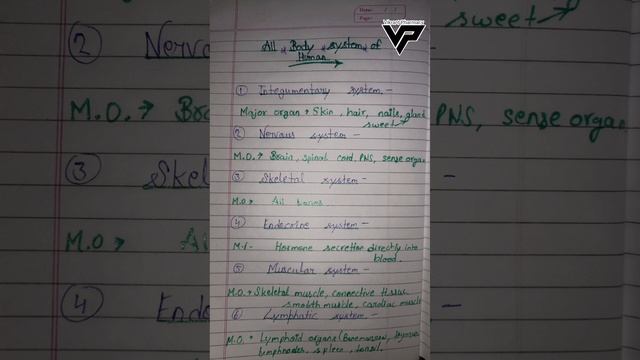 Name:
Page:
Vikrant Pharmacy
VP
All Body system of
Human
① Integumentary system -
Major organ → Skin, hair, nails, gland
sweet
② Nervous system -
M.O. → Brain, spinal cord, PNS, sense organ
③ Skeletal system -
M.O → All bones
④ Endocrine system -
M.1- Hormone secretion directly into
blood.
⑤ Muscular system -
M.O. → Skeletal muscle, connective tissue
smooth muscle, cardiac muscle
⑥ Lymphatic system -
M.O. → Lymphoid organs (Bonemarrow, thymus
lymphnodes, spleen, tonsil.
sweet
② Nerv
M.O. → Bra
PNS, sense organ
③ Skel
M.O → Al
④ Endo